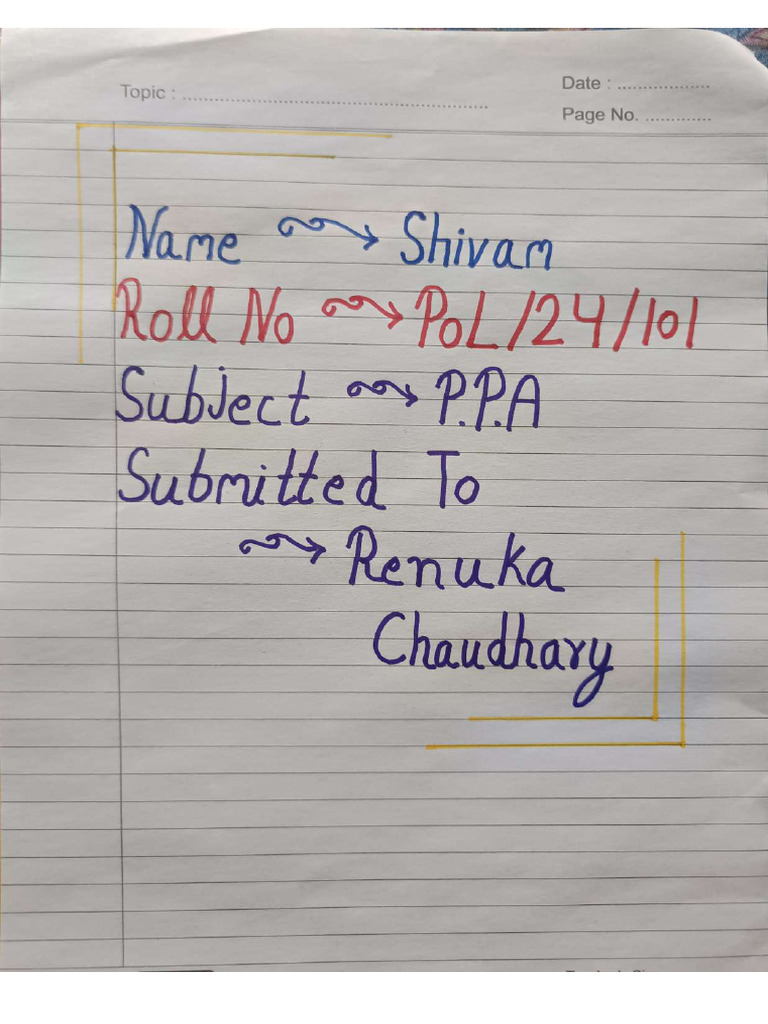 Topic : ......................................................
Date : ..................
Page No. .............
Name → Shivam
Roll No → PoL/24/101
Subject → P.P.A
Submitted To
→ Renuka
Chaudhary